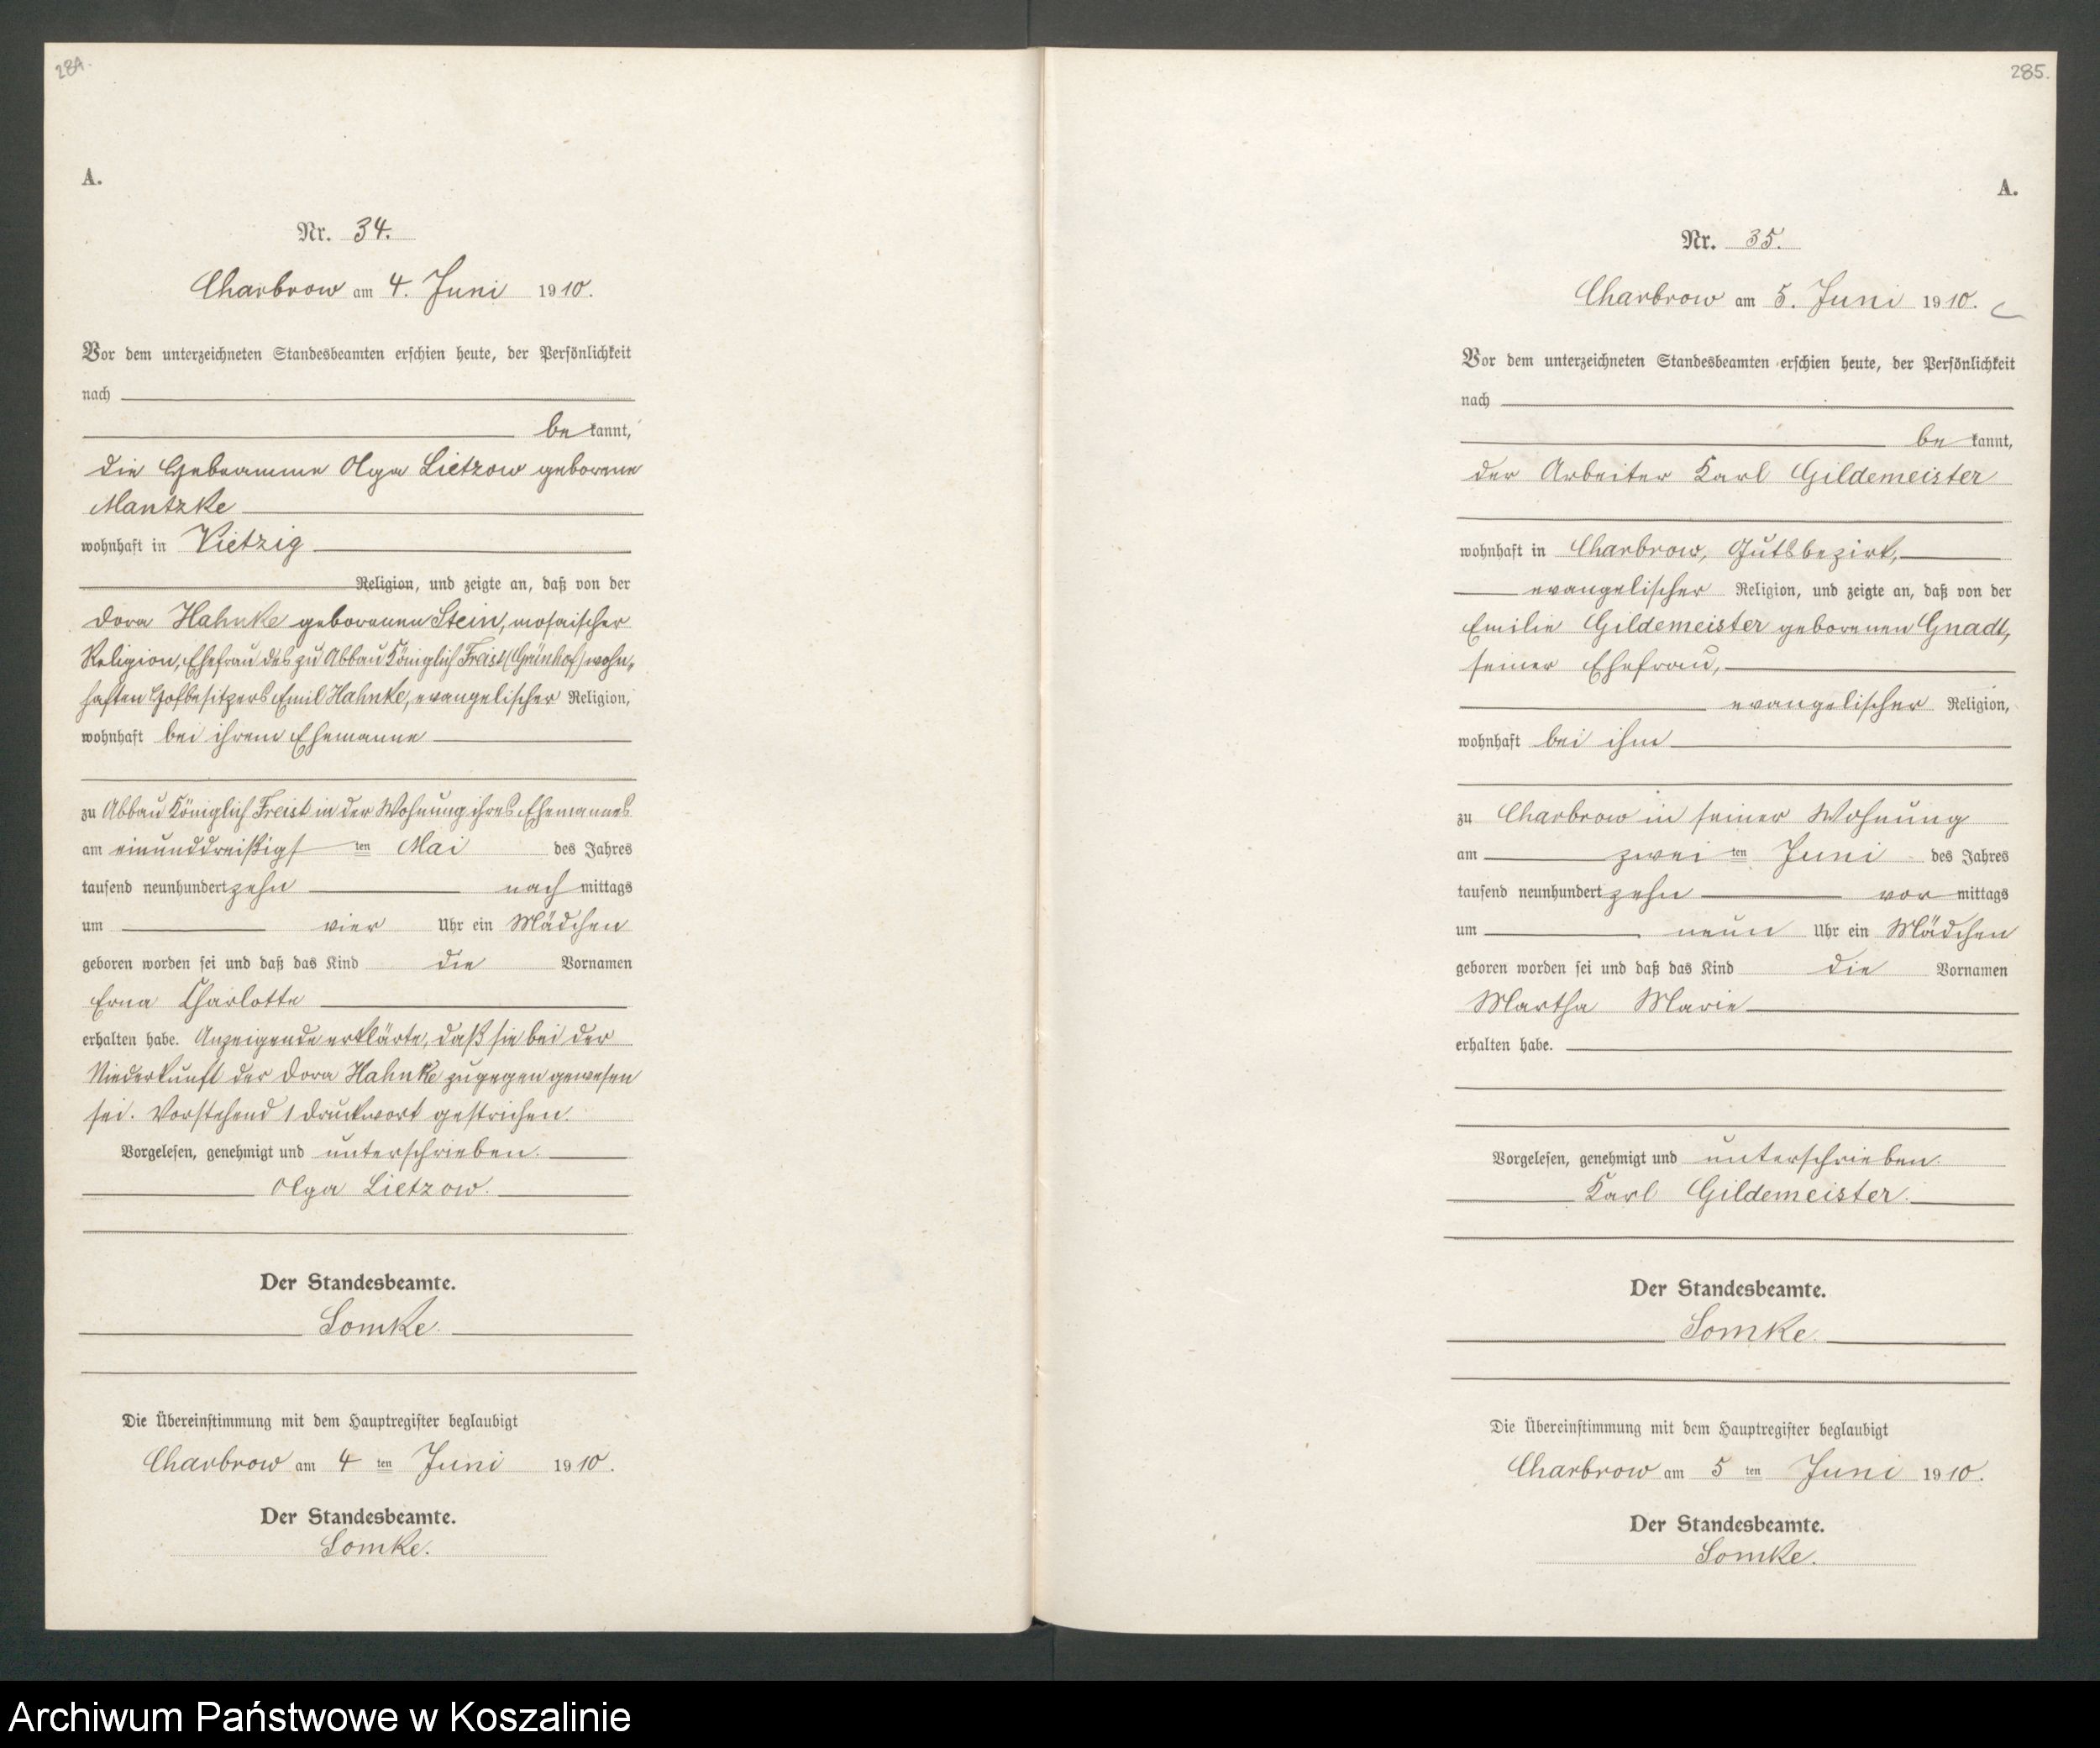 284.
A.
Nr. 34.
Charbrow am 4. Juni 1910.
Vor dem unterzeichneten Standesbeamten erschien heute, der Persönlichkeit
nach
bekannt,
die Hebeamme Olga Lietzow geborene
Mantzke
wohnhaft in Vietzig
Religion, und zeigte an, daß von der
Dora Hahnke geborenen Stein, mosaischer
Religion, Ehefrau des zu Abbau Königlich Freist (Grünhof) wohn-
haften Hofbesitzers Emil Hahnke, evangelischer Religion,
wohnhaft bei ihrem Ehemanne
zu Abbau Königlich Freist in der Wohnung ihres Ehemannes
am einunddreißigsten Mai des Jahres
tausend neunhundertzehn nachmittags
um vier Uhr ein Mädchen
geboren worden sei und daß das Kind die Vornamen
Erna Charlotte
erhalten habe. Anzeigende erklärte, daß sie bei der
Niederkunft der Dora Hahnke zugegen gewesen
sei. Vorstehend 1 Druckwort gestrichen.
Vorgelesen, genehmigt und unterschrieben.
Olga Lietzow.
Der Standesbeamte.
Somke.
Die Übereinstimmung mit dem Hauptregister beglaubigt
Charbrow am 4ten Juni 1910.
Der Standesbeamte.
Somke.
285.
A.
Nr. 35.
Charbrow am 5. Juni 1910.
Vor dem unterzeichneten Standesbeamten erschien heute, der Persönlichkeit
nach
bekannt,
der Arbeiter Karl Gildemeister
wohnhaft in Charbrow, Gutsbezirk,
evangelischer Religion, und zeigte an, daß von der
Emilie Gildemeister geborenen Gnadt,
seiner Ehefrau,
evangelischer Religion,
wohnhaft bei ihm
zu Charbrow in seiner Wohnung
am zweiten Juni des Jahres
tausend neunhundertzehn vormittags
um neun Uhr ein Mädchen
geboren worden sei und daß das Kind die Vornamen
Martha Marie
erhalten habe.
Vorgelesen, genehmigt und unterschrieben.
Karl Gildemeister.
Der Standesbeamte.
Somke.
Die Übereinstimmung mit dem Hauptregister beglaubigt
Charbrow am 5ten Juni 1910.
Der Standesbeamte.
Somke.
Archiwum Państwowe w Koszalinie